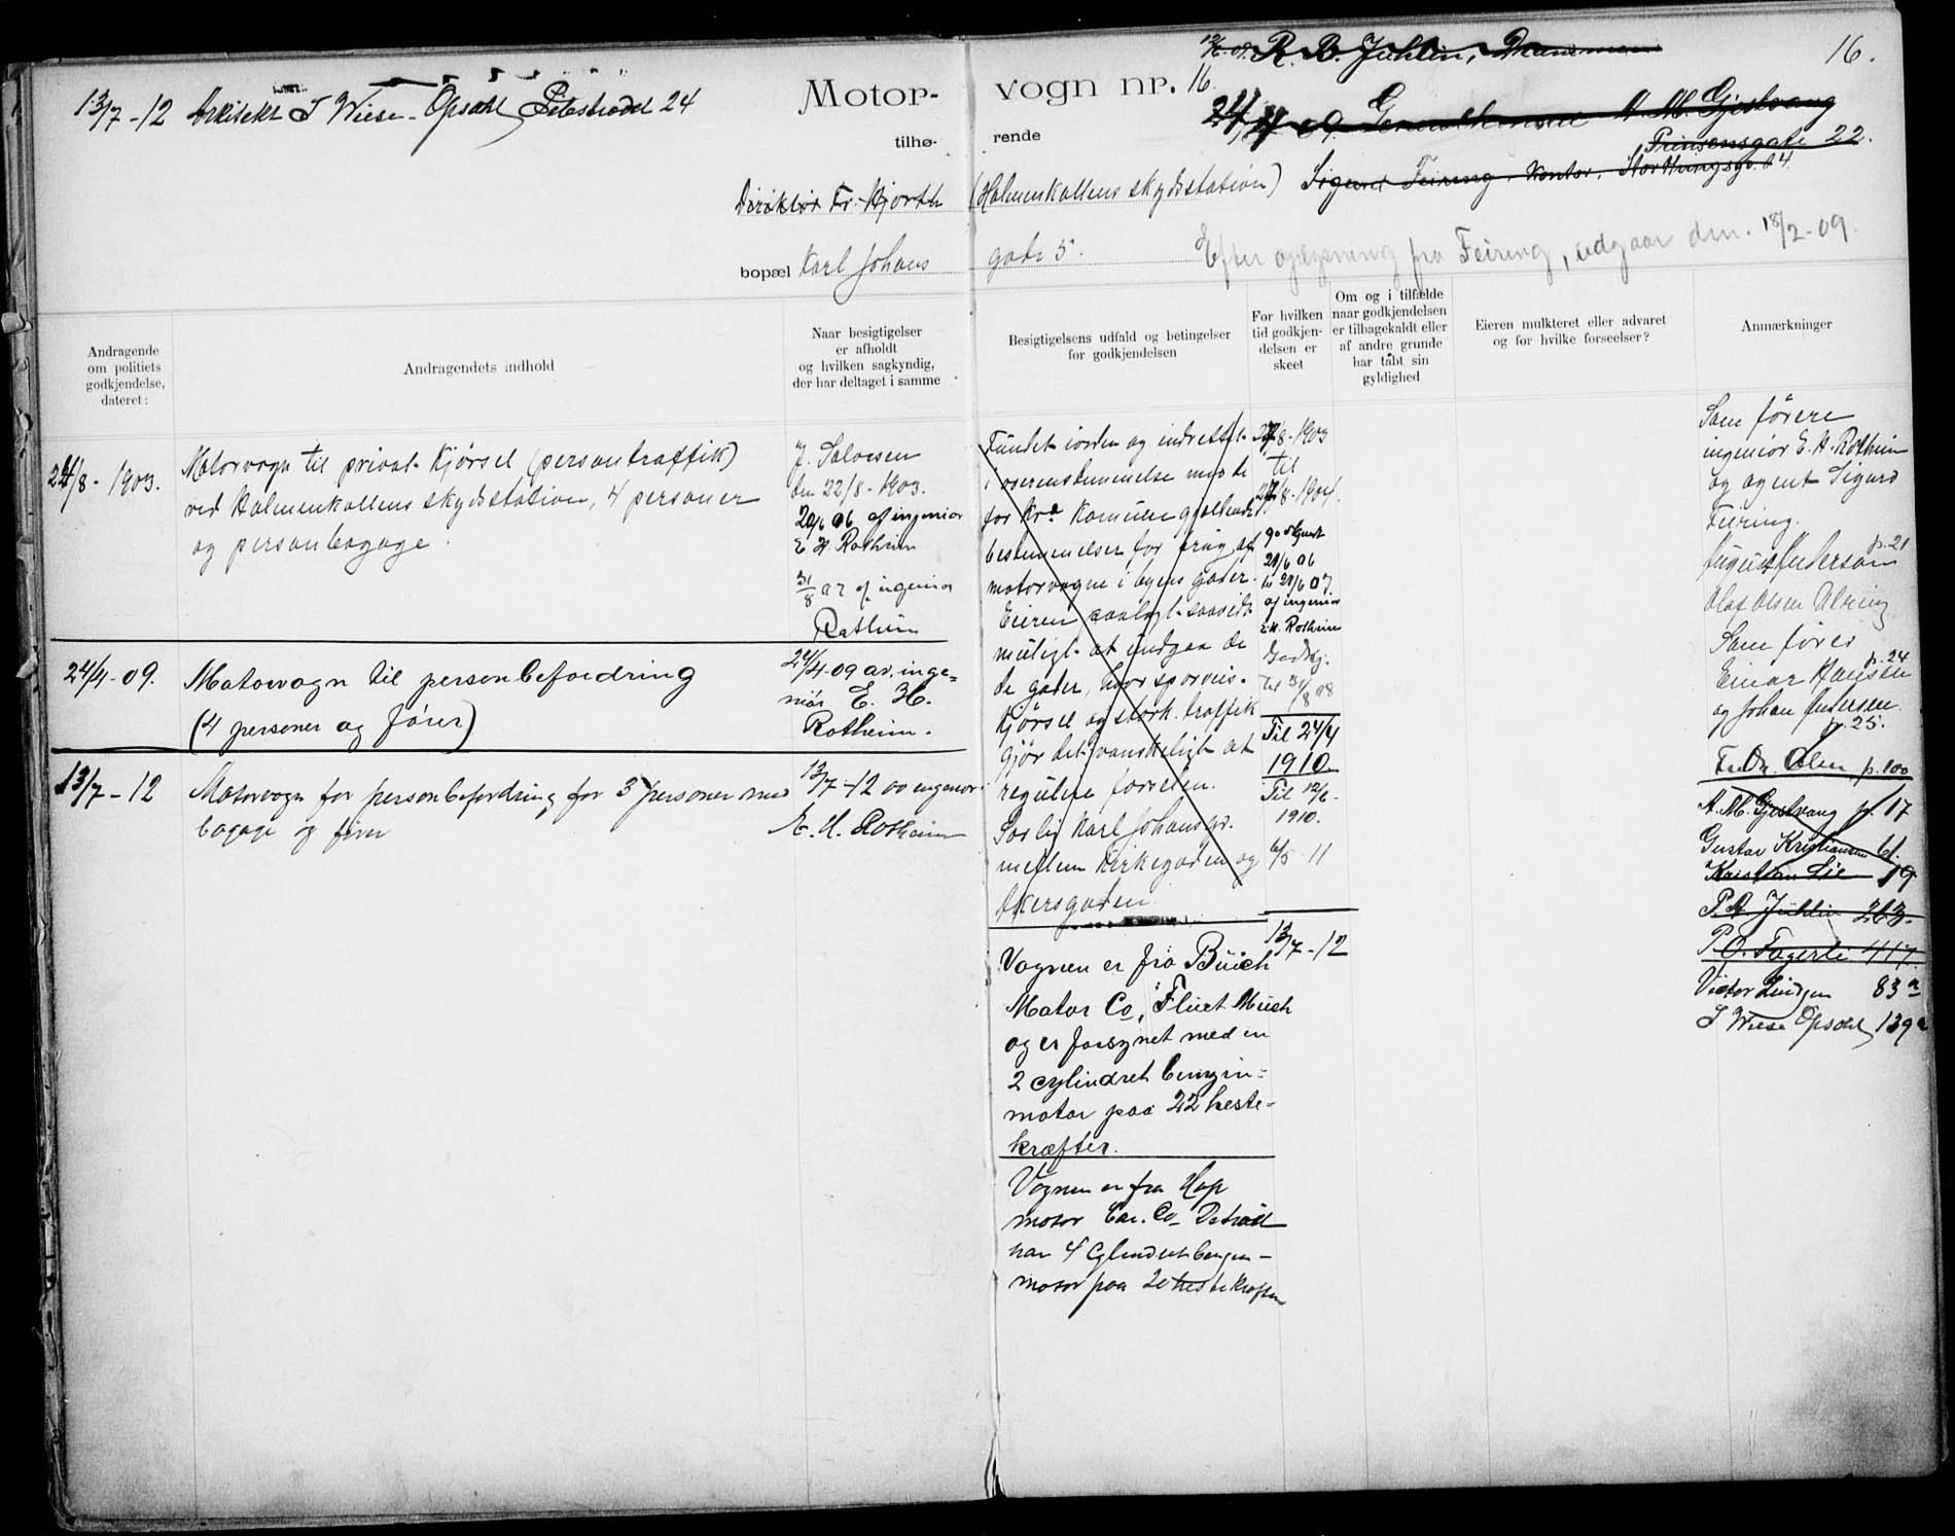 16.
12/6 09. R. B. Juhlin, Drammen
13/7 - 12 Arkitekt I Wiese-Opsahl Pilestrædet 24
Motor-vogn nr. 16
24/4 09. A. M. Gjestvang
Prinsensgate 22.
tilhørende
Direktør Fr. Hjorth (Holmenkollens skydsstation) Sigurd Feiring. Kontor. Storthingsgd. 4
bopæl Karl Johans gade 5.
Efter oplysning fra Feiring, udgaar den. 18/2-09.
Andragende
om politiets
godkjendelse,
dateret:
Andragendets indhold
Naar besigtigelser
er afholdt
og hvilken sagkyndig,
der har deltaget i samme
Besigtigelsens udfald og betingelser
for godkjendelsen
For hvilken
tid godkjen-
delsen er
skeet
Om og i tilfælde
naar godkjendelsen
er tilbagekaldt eller
af andre grunde
har tabt sin
gyldighed
Eieren mulkteret eller advaret
og for hvilke forseelser?
Anmærkninger
24/8 - 1903.
Motorvogn til privat kjørsel (persontraffik)
ved Holmenkollens skydsstation, 4 personer
og personbagage.
J. Salvesen
den 22/8 - 1903.
20/6 06 af ingeniør
E H Rotheim
31/8 07 af ingeniør
Rotheim
Fundet iorden og indrettet
i overensstemmelse med de
for Kra. Kommune gjældende
bestemmelser for brug af
motorvogne i byens gader.
Eieren paalagt saavidt
muligt at undgaa de
de gader, hvor sporveis-
kjørsel og stærk traffik
gjør det vanskeligt at
regulere farten.
Særlig Karl Johans gd.
mellem Kirkegaden og
Akersgaden
24/8 - 1903
til
24/8 - 1904.
godkjent
20/6 06
til 20/6 07
af ingeniør
E. H. Rotheim
Godkj.
til 31/8 08
Til 24/4
1910.
Til 12/6 -
1910.
6/5 11
Som førere
ingeniør E. H. Rotheim
og agent Sigurd
Feiring.
August Andersen p. 21
Olaf Olsen
Som fører
Einar Hansen p. 24
og Johan Andersen.
p. 25.
Fredr. Olsen p. 100
A. M. Gjestvang p. 17
Gustav Kristiansen 61.
Kristian Lie 19
P. B. Juhlin 263.
P. O. Fagerli 417.
Victor Lindgren 83 a
I Wiese Opsahl 139 a
24/4 - 09.
Motorvogn til personbefordring
(4 personer og fører)
24/4-09 av. inge=
niør E. H.
Rotheim.
13/7 - 12
Motorvogn for personbefordring for 3 personer med
bagage og fører
13/7 - 12 av ingeniør
E. H. Rotheim
13/7 - 12
Vognen er fra Buich
Motor Co, Flint Mich
og er forsynet med en
2 cylindret benzin=
motor paa 22 heste-
kræfter.
Vognen er fra Hup
motor Car. Co Detroit
har 4 Cylindret benzin-
motor paa 20 hestekræfter